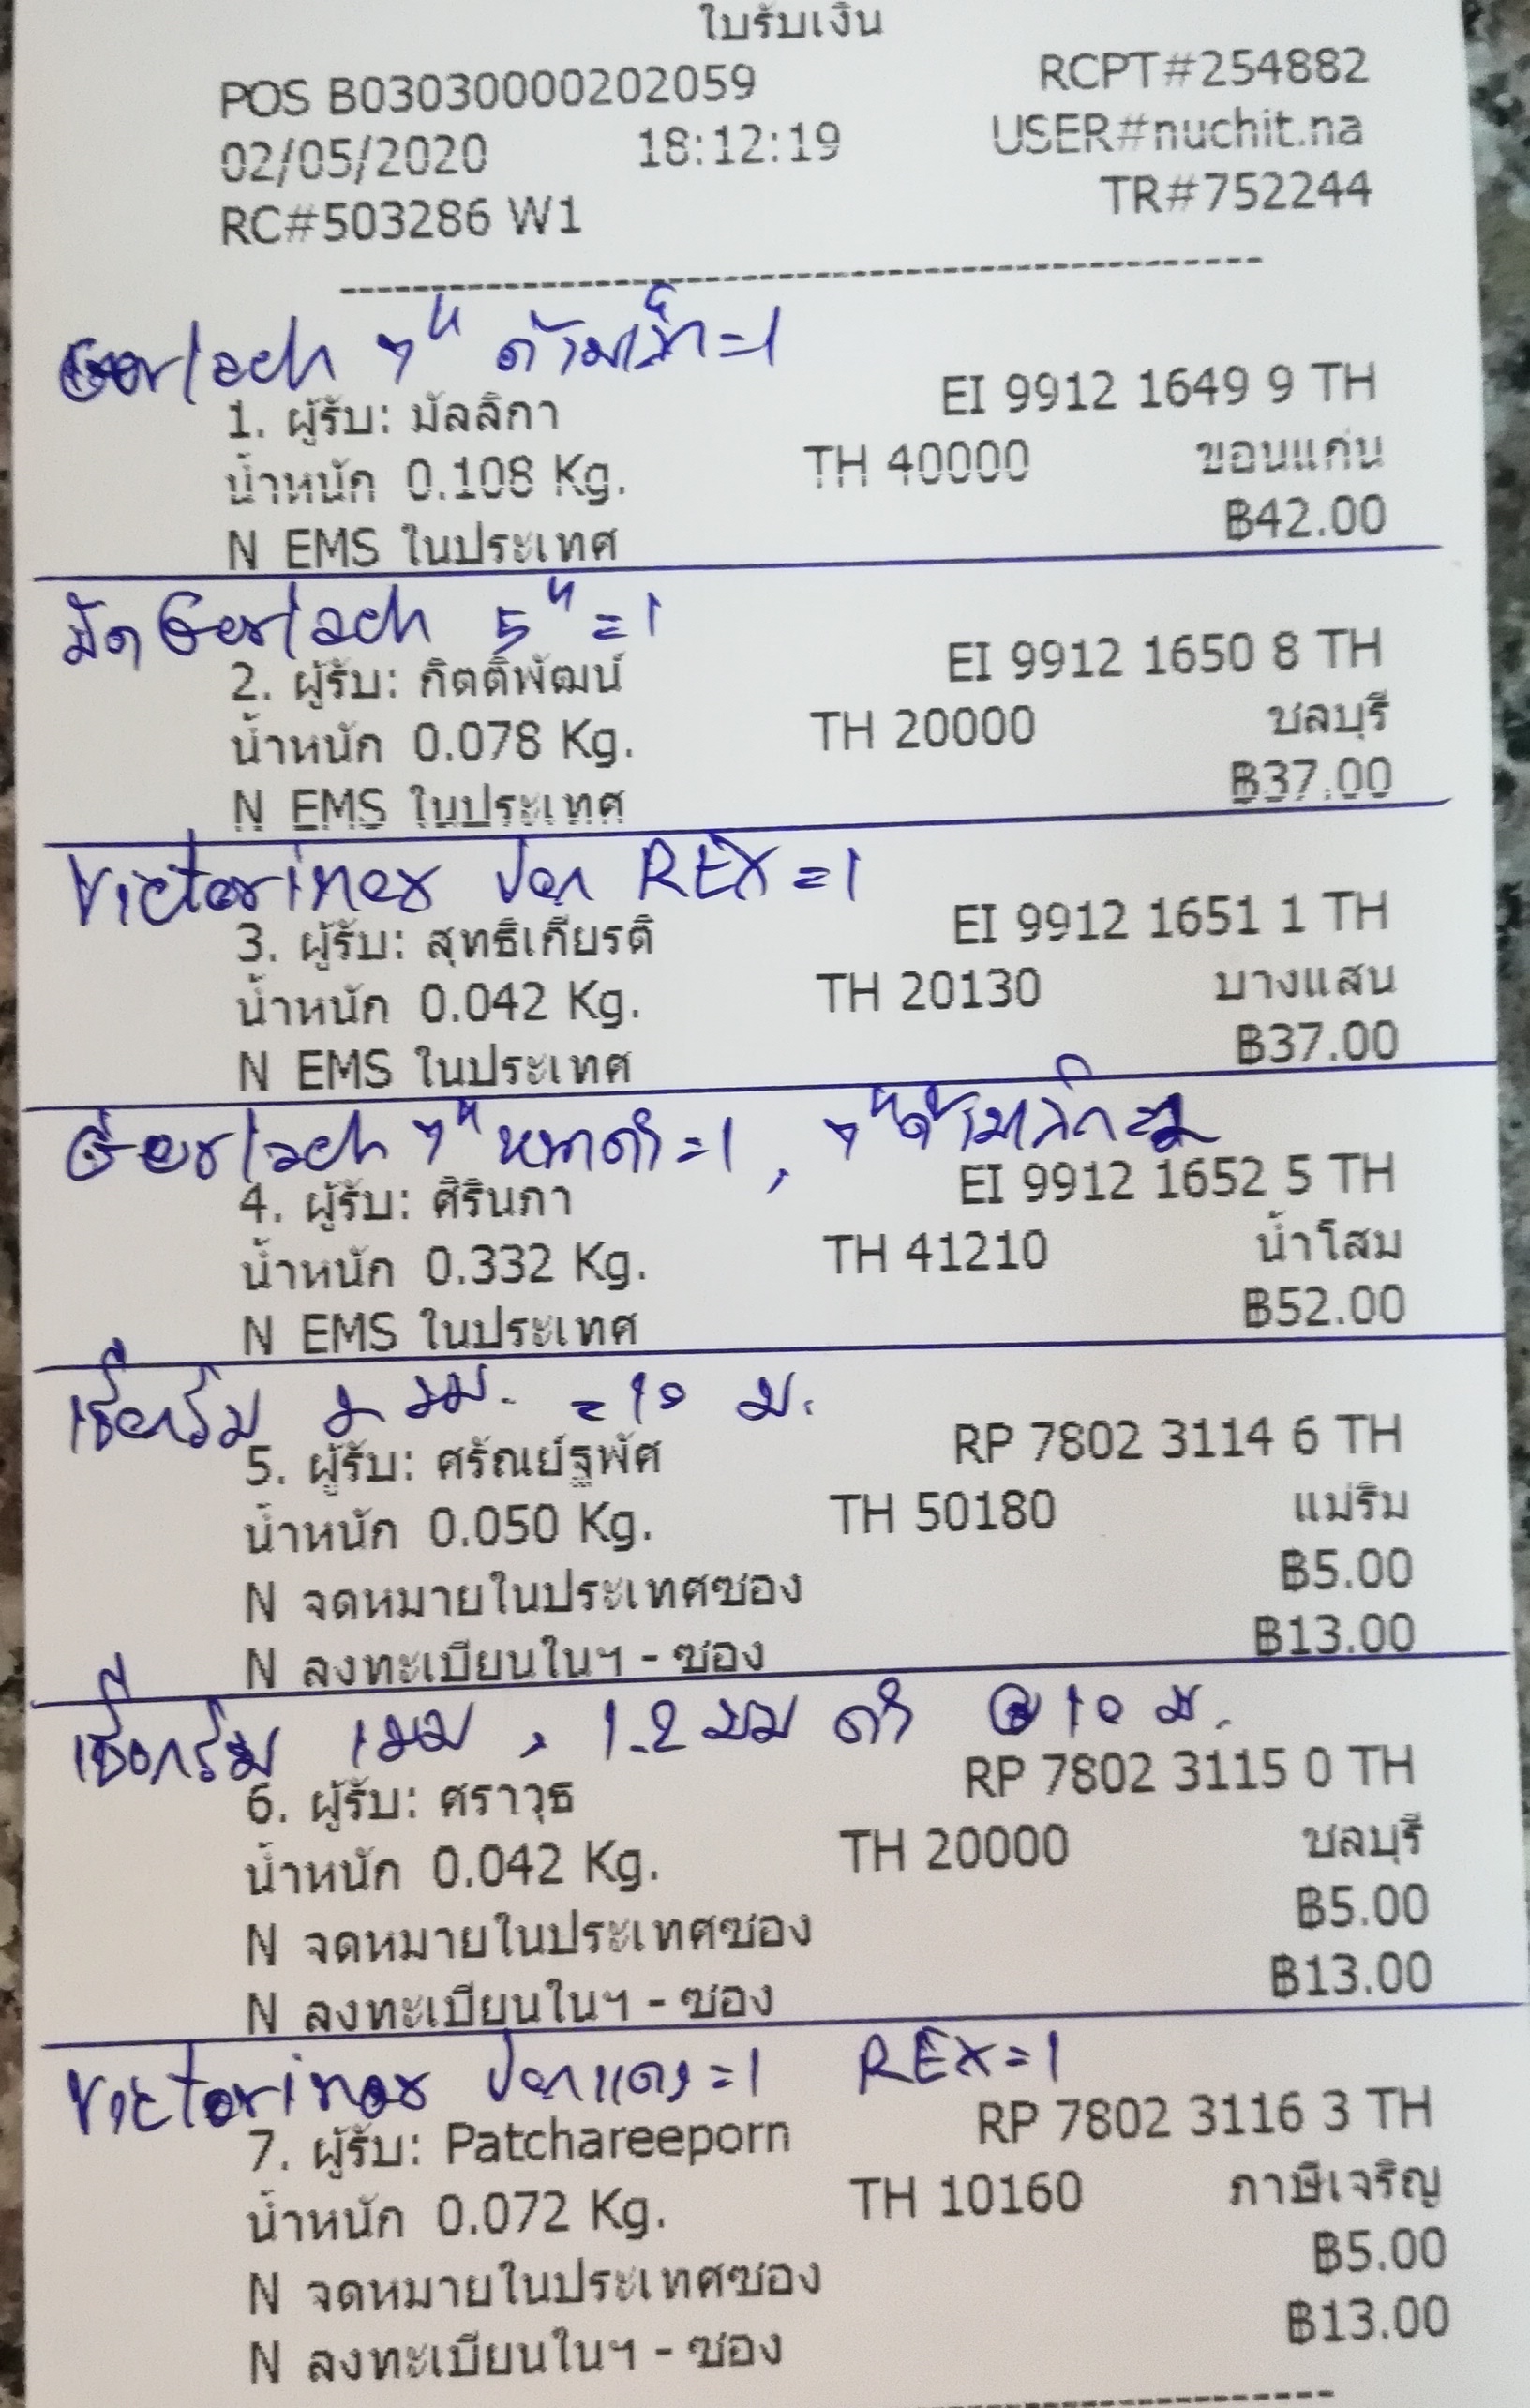 ใบรับเงิน
POS B03030000202059 RCPT#254882
02/05/2020 18:12:19 USER#nuchit.na
RC#503286 W1 TR#752244
Gerlach 7" ด้ามเล็ก=1
1. ผู้รับ: มัลลิกา EI 9912 1649 9 TH
น้ำหนัก 0.108 Kg. TH 40000 ขอนแก่น
N EMS ในประเทศ ฿42.00
มีด Gerlach 5" = 1
2. ผู้รับ: กิตติพัฒน์ EI 9912 1650 8 TH
น้ำหนัก 0.078 Kg. TH 20000 ชลบุรี
N EMS ในประเทศ ฿37.00
Victorinox ปอก REX = 1
3. ผู้รับ: สุทธิเกียรติ EI 9912 1651 1 TH
น้ำหนัก 0.042 Kg. TH 20130 บางแสน
N EMS ในประเทศ ฿37.00
Gerlach 7" =1, 7" ด้ามเล็ก=2
4. ผู้รับ: ศิรินภา EI 9912 1652 5 TH
น้ำหนัก 0.332 Kg. TH 41210 น้ำโสม
N EMS ในประเทศ ฿52.00
เชือกร่ม 2 มม. = 10 ม.
5. ผู้รับ: ศรัณย์ฐพัศ RP 7802 3114 6 TH
น้ำหนัก 0.050 Kg. TH 50180 แม่ริม
N จดหมายในประเทศซอง ฿5.00
N ลงทะเบียนในฯ - ซอง ฿13.00
เชือกร่ม 1 มม, 1.2 มม ดำ @ 10 ม.
6. ผู้รับ: ศราวุธ RP 7802 3115 0 TH
น้ำหนัก 0.042 Kg. TH 20000 ชลบุรี
N จดหมายในประเทศซอง ฿5.00
N ลงทะเบียนในฯ - ซอง ฿13.00
Victorinox ปอกแดง=1 REX=1
7. ผู้รับ: Patchareeporn RP 7802 3116 3 TH
น้ำหนัก 0.072 Kg. TH 10160 ภาษีเจริญ
N จดหมายในประเทศซอง ฿5.00
N ลงทะเบียนในฯ - ซอง ฿13.00